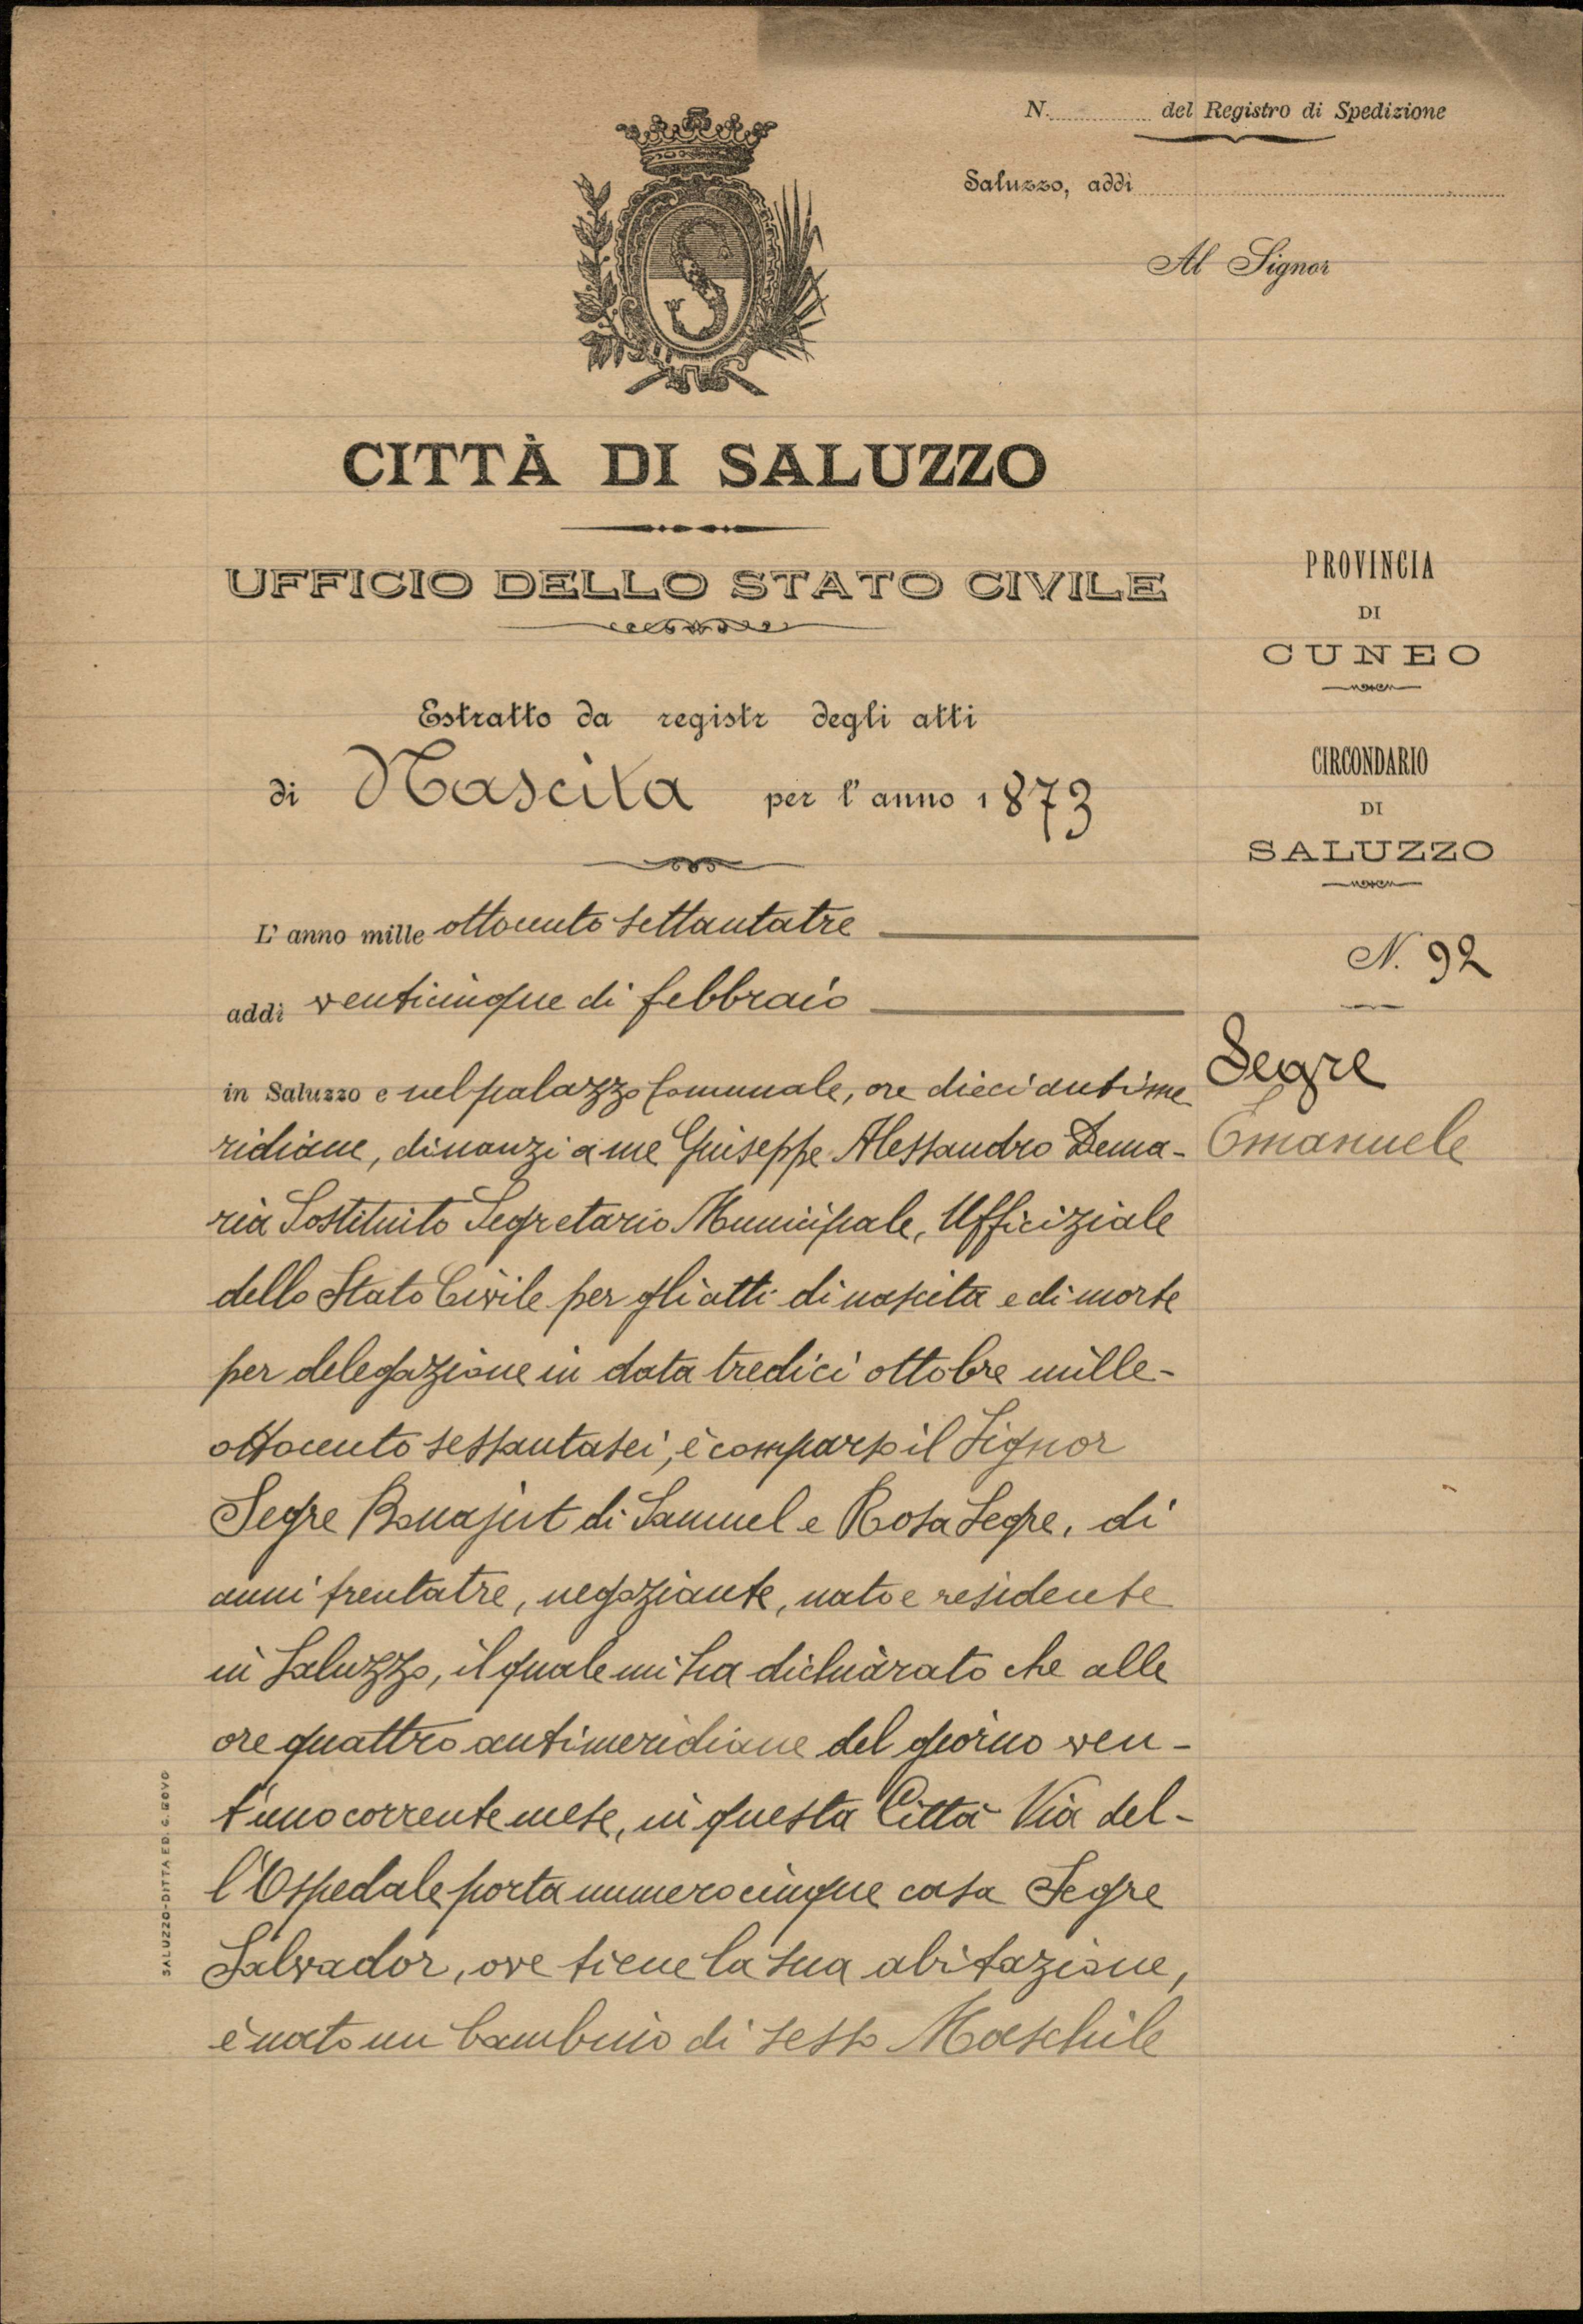 N. del Registro di Spedizione
Saluzzo, addì
Al Signor
CITTÀ DI SALUZZO
UFFICIO DELLO STATO CIVILE
PROVINCIA
DI
CUNEO
CIRCONDARIO
DI
SALUZZO
Estratto da registr degli atti
di Nascita per l'anno 1873
L'anno mille ottocento settantatre
addì venticinque di febbraio
N. 92
Segre
Emanuele
in Saluzzo e nel palazzo Comunale, ore dieci antime
ridiane, dinanzi a me Giuseppe Alessandro Dema-
ria Sostituito Segretario Municipale, Ufficiziale
dello Stato Civile per gli atti di nascita e di morte
per delegazione in data tredici ottobre mille-
ottocento sessantasei, è comparso il Signor
Segre Bonajut di Samuel e Rosa Segre, di
anni trentatre, negoziante, nato e residente
in Saluzzo, il quale mi ha dichiarato che alle
ore quattro antimeridiane del giorno ven-
t'uno corrente mese, in questa Città Via del-
l'Ospedale porta numero cinque casa Segre
Salvador, ove tiene la sua abitazione,
è nato un bambino di sesso Maschile
SALUZZO-DITTA ED. G. BOVO